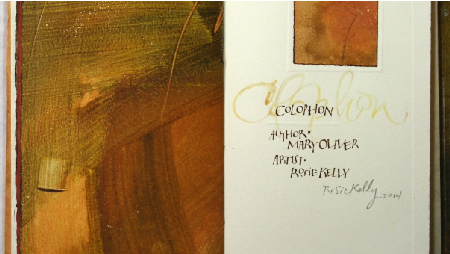 Colophon
COLOPHON
AUTHOR·
MARY OLIVER
ARTIST·
ROSIE KELLY
Rosie Kelly 2004